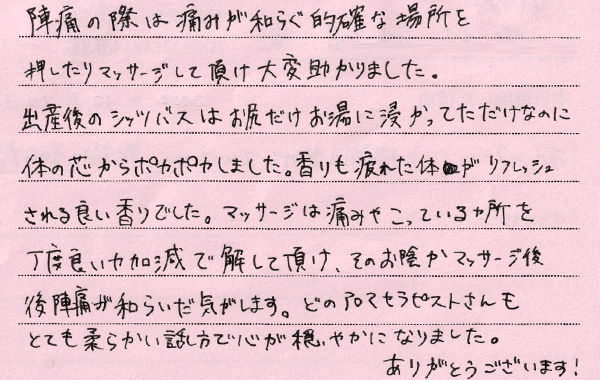 陣痛の際は痛みが和らぐ的確な場所を
押したりマッサージして頂け大変助かりました。
出産後のシッツバスはお尻だけお湯に浸かってただけなのに
体の芯からポカポカしました。香りも疲れた体がリフレッシュ
される良い香りでした。マッサージは痛みやこっているヶ所を
丁度良い力加減で解して頂け、そのお陰かマッサージ後
後陣痛が和らいだ気がします。どのアロマセラピストさんも
とても柔らかい話し方で心が穏やかになりました。
ありがとうございます!